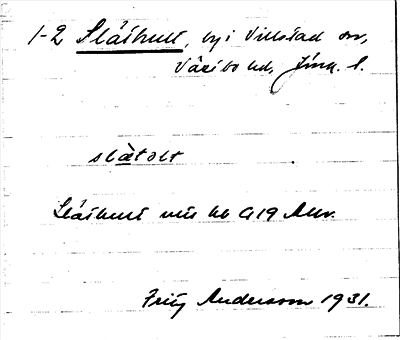 1-2 Slåthult, by i Villstad sn,
Västbo hd, Jönk. l.
slätolt
Slåthult
Fritz Andersson 1931.